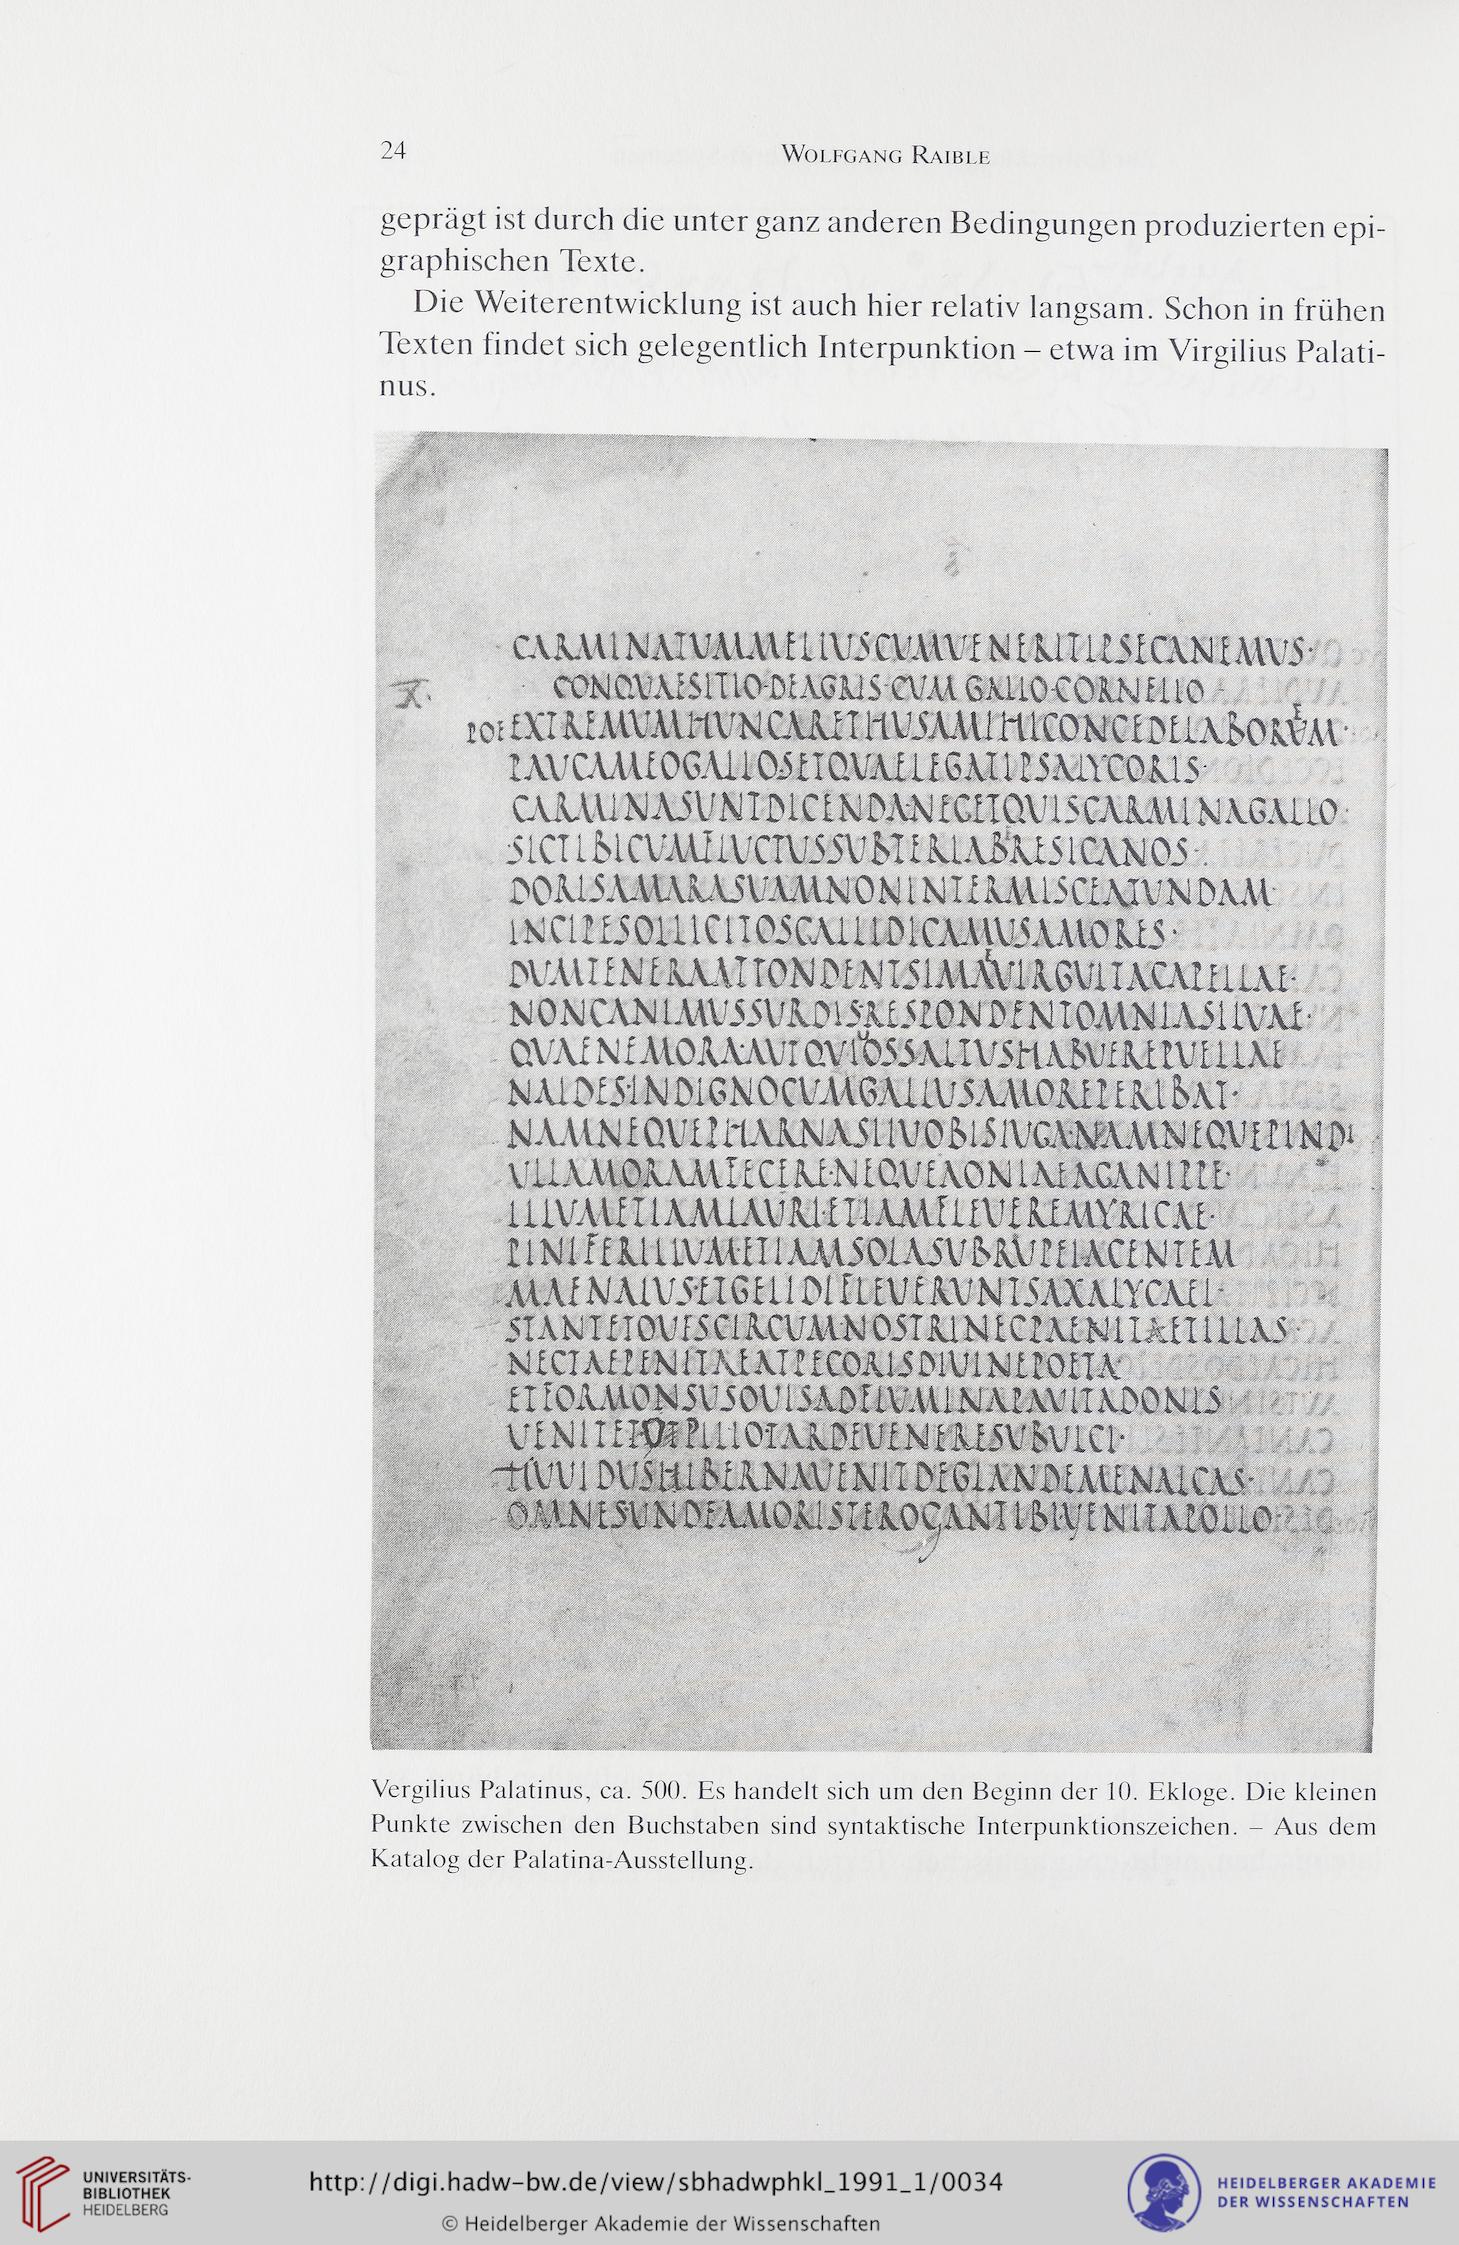 24
WOLFGANG RAIBLE
geprägt ist durch die unter ganz anderen Bedingungen produzierten epi-
graphischen Texte.
Die Weiterentwicklung ist auch hier relativ langsam. Schon in frühen
Texten findet sich gelegentlich Interpunktion – etwa im Virgilius Palati-
nus.
CARMINATVMMELIVSCVMVENERITIPSECANEMVS·
X·
CONQVAESITIO·DEAGRIS·CVM GALLO·CORNELIO
POE EXTREMVMHVNCARETHVSAMIHICONCEDELABORVM·
PAVCAMEOGALLO·SETQVAELEGATIPSALYCORIS·
CARMINASVNTDICENDA·NEGETQVISCARMINAGALLO·
SICTIBICVMFLVCTVSSVBTERLABRESICANOS·
DORISAMARASVAMNONINTERMISCEATVNDAM·
INCIPESOLLICITOSGALLIDICAMVSAMORES·
DVMTENERAATTONDENTSIMAVIRGVLTACAPELLAE·
NONCANIMVSSVRDIS·RESPONDENTOMNIASILVAE·
QVAENEMORA·AVTQVIOSSALTVSHABVEREPVELLAE
NAIDES·INDIGNOCVMGALLVSAMOREPERIBAT·
NAMNEQVEPHARNASIIVOBISIVGA·NAMNEQVEPINDI
VLLAMORAMFECERE·NEQVEAONIAEAGANIPPE·
ILLVMETIAMLAVRI·ETIAMFLEVEREMYRICAE·
PINIFERILLVM·ETIAMSOLASVBRVPEIACENTEM
MAENALVS·ETGELIDIFLEVERVNTSAXALYCAEI·
STANTETOVESCIRCVM·NOSTRINECPAENITAETILLAS·
NECTAEPENITAEATPECORISDIVINEPOETA·
ETFORMONSVSOVISADFLVMINAPAVITADONIS
VENITETVTPILIOTARDEVENERESVBVLCI·
HVVIDVSHIBERNAVENITDEGLANDEMENALCAS·
OMNESVNDEAMORISTEROGANTIBI·VENITAPOLLO·
Vergilius Palatinus, ca. 500. Es handelt sich um den Beginn der 10. Ekloge. Die kleinen
Punkte zwischen den Buchstaben sind syntaktische Interpunktionszeichen. – Aus dem
Katalog der Palatina-Ausstellung.
UNIVERSITÄTS-
BIBLIOTHEK
HEIDELBERG
http://digi.hadw-bw.de/view/sbhadwphkl_1991_1/0034
© Heidelberger Akademie der Wissenschaften
HEIDELBERGER AKADEMIE
DER WISSENSCHAFTEN